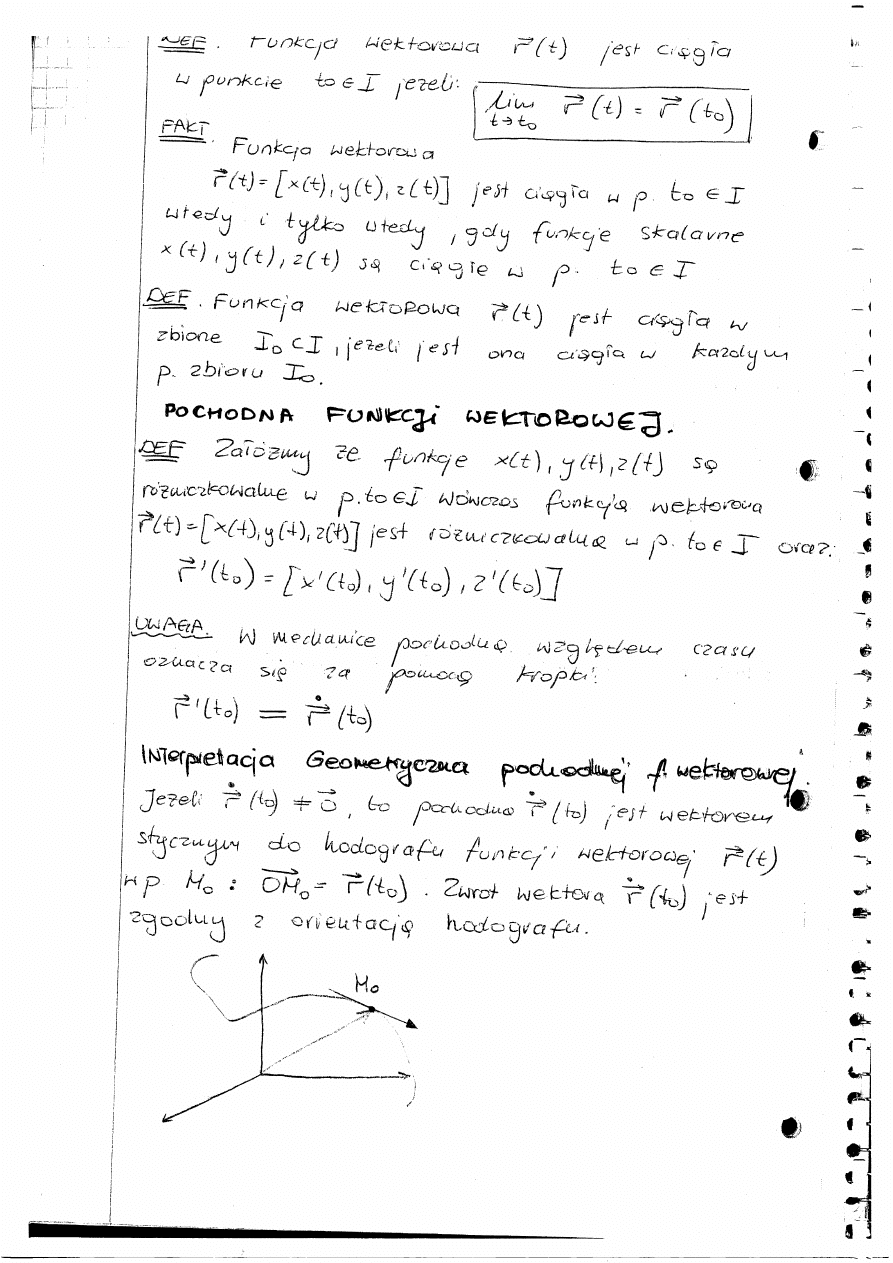 DEF. Funkcja wektorowa r⃗(t) jest ciągła
w punkcie to ∈ I jeżeli:
lim t→t₀ r⃗(t) = r⃗(t₀)
FAKT.
Funkcja wektorowa
r⃗(t) = [x(t), y(t), z(t)] jest ciągła w p. to ∈ I
wtedy i tylko wtedy, gdy funkcje skalarne
x(t), y(t), z(t) są ciągłe w p. to ∈ I
DEF. Funkcja wektorowa r⃗(t) jest ciągła w
zbiorze I₀ ⊂ I, jeżeli jest ona ciągła w każdym
p. zbioru I₀.
POCHODNA FUNKCJi WEKTOROWEJ.
DEF Załóżmy że funkcje x(t), y(t), z(t) są
różniczkowalne w p. to ∈ I wówczas funkcja wektorowa
r⃗(t) = [x(t), y(t), z(t)] jest różniczkowalna w p. to ∈ I oraz:
r⃗'(t₀) = [x'(t₀), y'(t₀), z'(t₀)]
UWAGA. W mechanice pochodną względem czasu
oznacza się za pomocą kropki:
r⃗'(t₀) = ṙ⃗(t₀)
Interpretacja Geometryczna pochodnej f. wektorowej.
Jeżeli ṙ⃗(t₀) ≠ 0⃗, to pochodna ṙ⃗(t₀) jest wektorem
stycznym do hodografu funkcji wektorowej r⃗(t)
w p. M₀ : OM₀⃗ = r⃗(t₀). Zwrot wektora ṙ⃗(t₀) jest
zgodny z orientacją hodografu.
M₀